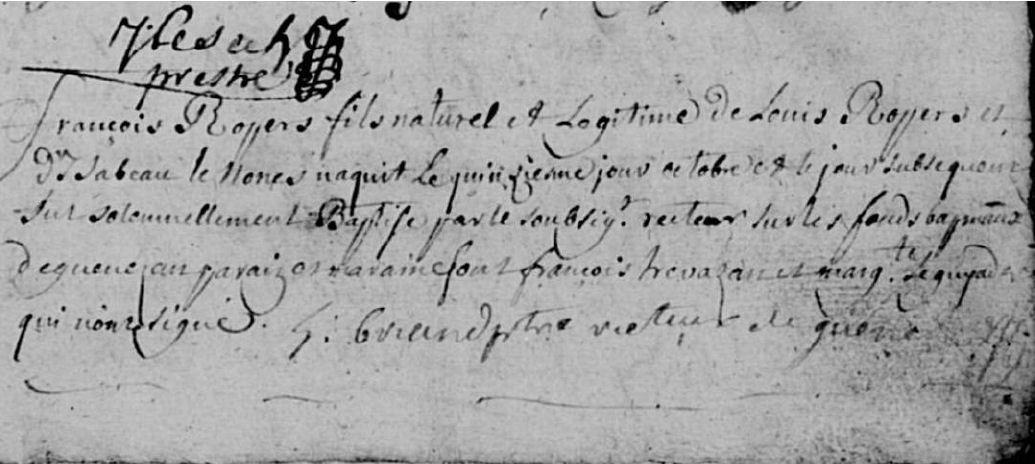 prestre
françois Ropers fils naturel et Logitime de Louis Ropers et
Isabeau le naquit Le quinziesme jour octobre et le jour subsequent
fut solennellement Baptise par le soubsig.t recteur sur les fonds baptismaux
de parain et maraine sont françois et marg.te Le
qui n'ont signé. briand ptre recteur de